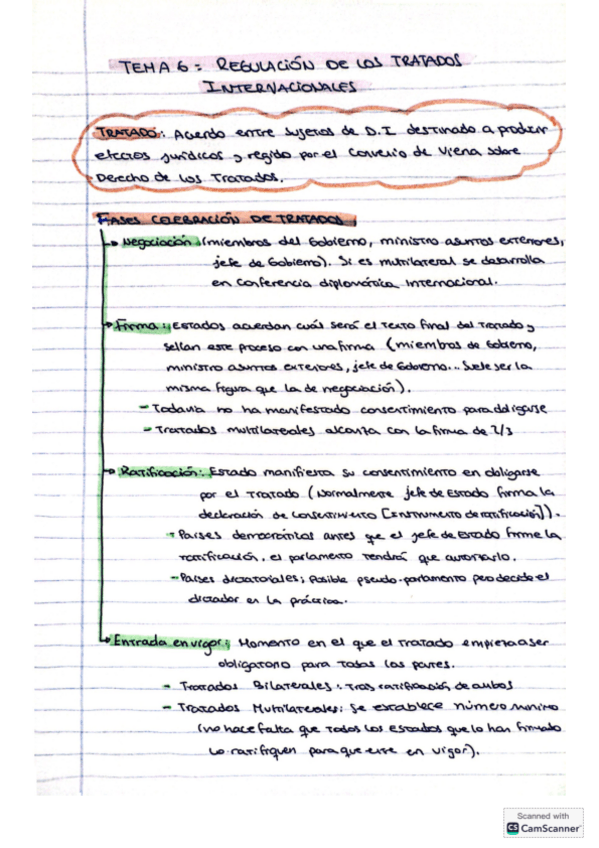 TEMA 6: REGULACIÓN DE LOS TRATADOS
INTERNACIONALES
TRATADO: Acuerdo entre sujetos de D.I destinado a producir
efectos jurídicos y regido por el Convenio de Viena sobre
Derecho de los Tratados.
FASES CELEBRACIÓN DE TRATADOS:
Negociación (miembros del Gobierno, ministro asuntos exteriores,
jefe de Gobierno). Si es multilateral se desarrolla
en Conferencia diplomática internacional.
Firma: estados acuerdan cuál será el texto final del Tratado y
sellan este proceso con una firma (miembros de Gobierno,
ministro asuntos exteriores, jefe de Gobierno... Suele ser la
misma figura que la de negociación).
- Todavía no ha manifestado consentimiento para obligarse
- Tratados multilaterales alcanza con la firma de 2/3
Ratificación: Estado manifiesta su consentimiento en obligarse
por el Tratado (Normalmente jefe de Estado firma la
declaración de consentimiento [INSTRUMENTO de ratificación]).
- Países democráticos antes que el jefe de Estado firme la
ratificación, el parlamento tendrá que autorizarlo.
- Países dictatoriales; Posible pseudo-parlamento pero decide el
dictador en la práctica.
Entrada en vigor; Momento en el que el tratado empieza a ser
obligatorio para todas las partes.
- Tratados Bilaterales: Tras ratificación de ambos
- Tratados Multilaterales: Se establece número mínimo
(no hace falta que todos los estados que lo han firmado
lo ratifiquen para que entre en vigor).
Scanned with
CS CamScanner